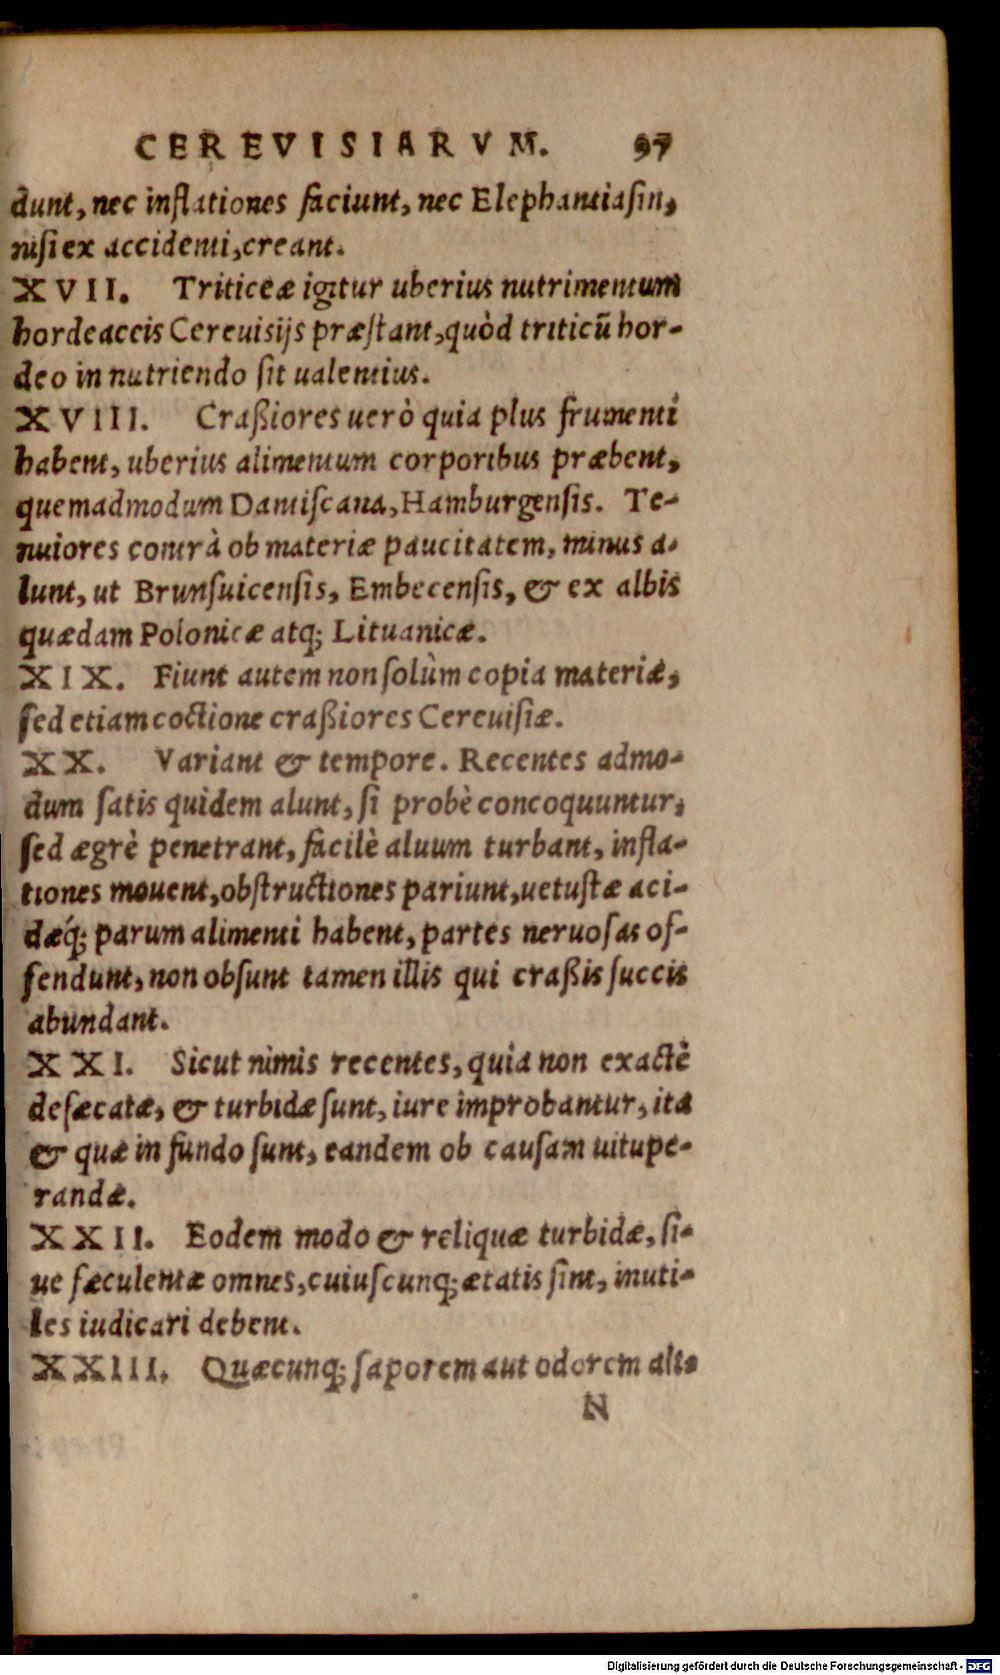 CEREVISIARVM. 97
dunt, nec inflationes faciunt, nec Elephantiaſin,
niſi ex accidenti, creant.
XVII. Triticeæ igitur uberius nutrimentum
hordeaceis Cereuisijs præſtant, quòd triticũ hor-
deo in nutriendo ſit ualentius.
XVIII. Craßiores uerò quia plus frumenti
habent, uberius alimentum corporibus præbent,
quemadmodum Dantiſcana, Hamburgenſis. Te-
nuiores contrà ob materiæ paucitatem, minus a-
lunt, ut Brunſuicenſis, Embecenſis, & ex albis
quædam Polonicæ atq; Lituanicæ.
XIX. Fiunt autem non ſolùm copia materiæ,
ſed etiam coctione craßiores Cereuiſiæ.
XX. Variant & tempore. Recentes admo-
dum ſatis quidem alunt, ſi probè concoquuntur,
ſed ægrè penetrant, facilè aluum turbant, infla-
tiones mouent, obſtructiones pariunt, uetuſtæ aci-
dæq́; parum alimenti habent, partes neruoſas of-
fendunt, non obſunt tamen illis qui craßis ſuccis
abundant.
XXI. Sicut nimis recentes, quia non exactè
defæcatæ, & turbidæ ſunt, iure improbantur, ita
& quæ in fundo ſunt, eandem ob cauſam uitupe-
randæ.
XXII. Eodem modo & reliquæ turbidæ, ſi-
ue fæculentæ omnes, cuiuſcunq; ætatis ſint, inuti-
les iudicari debent.
XXIII. Quæcunq; ſaporem aut odorem ali-
N
Digitalisierung gefördert durch die Deutsche Forschungsgemeinschaft - DFG